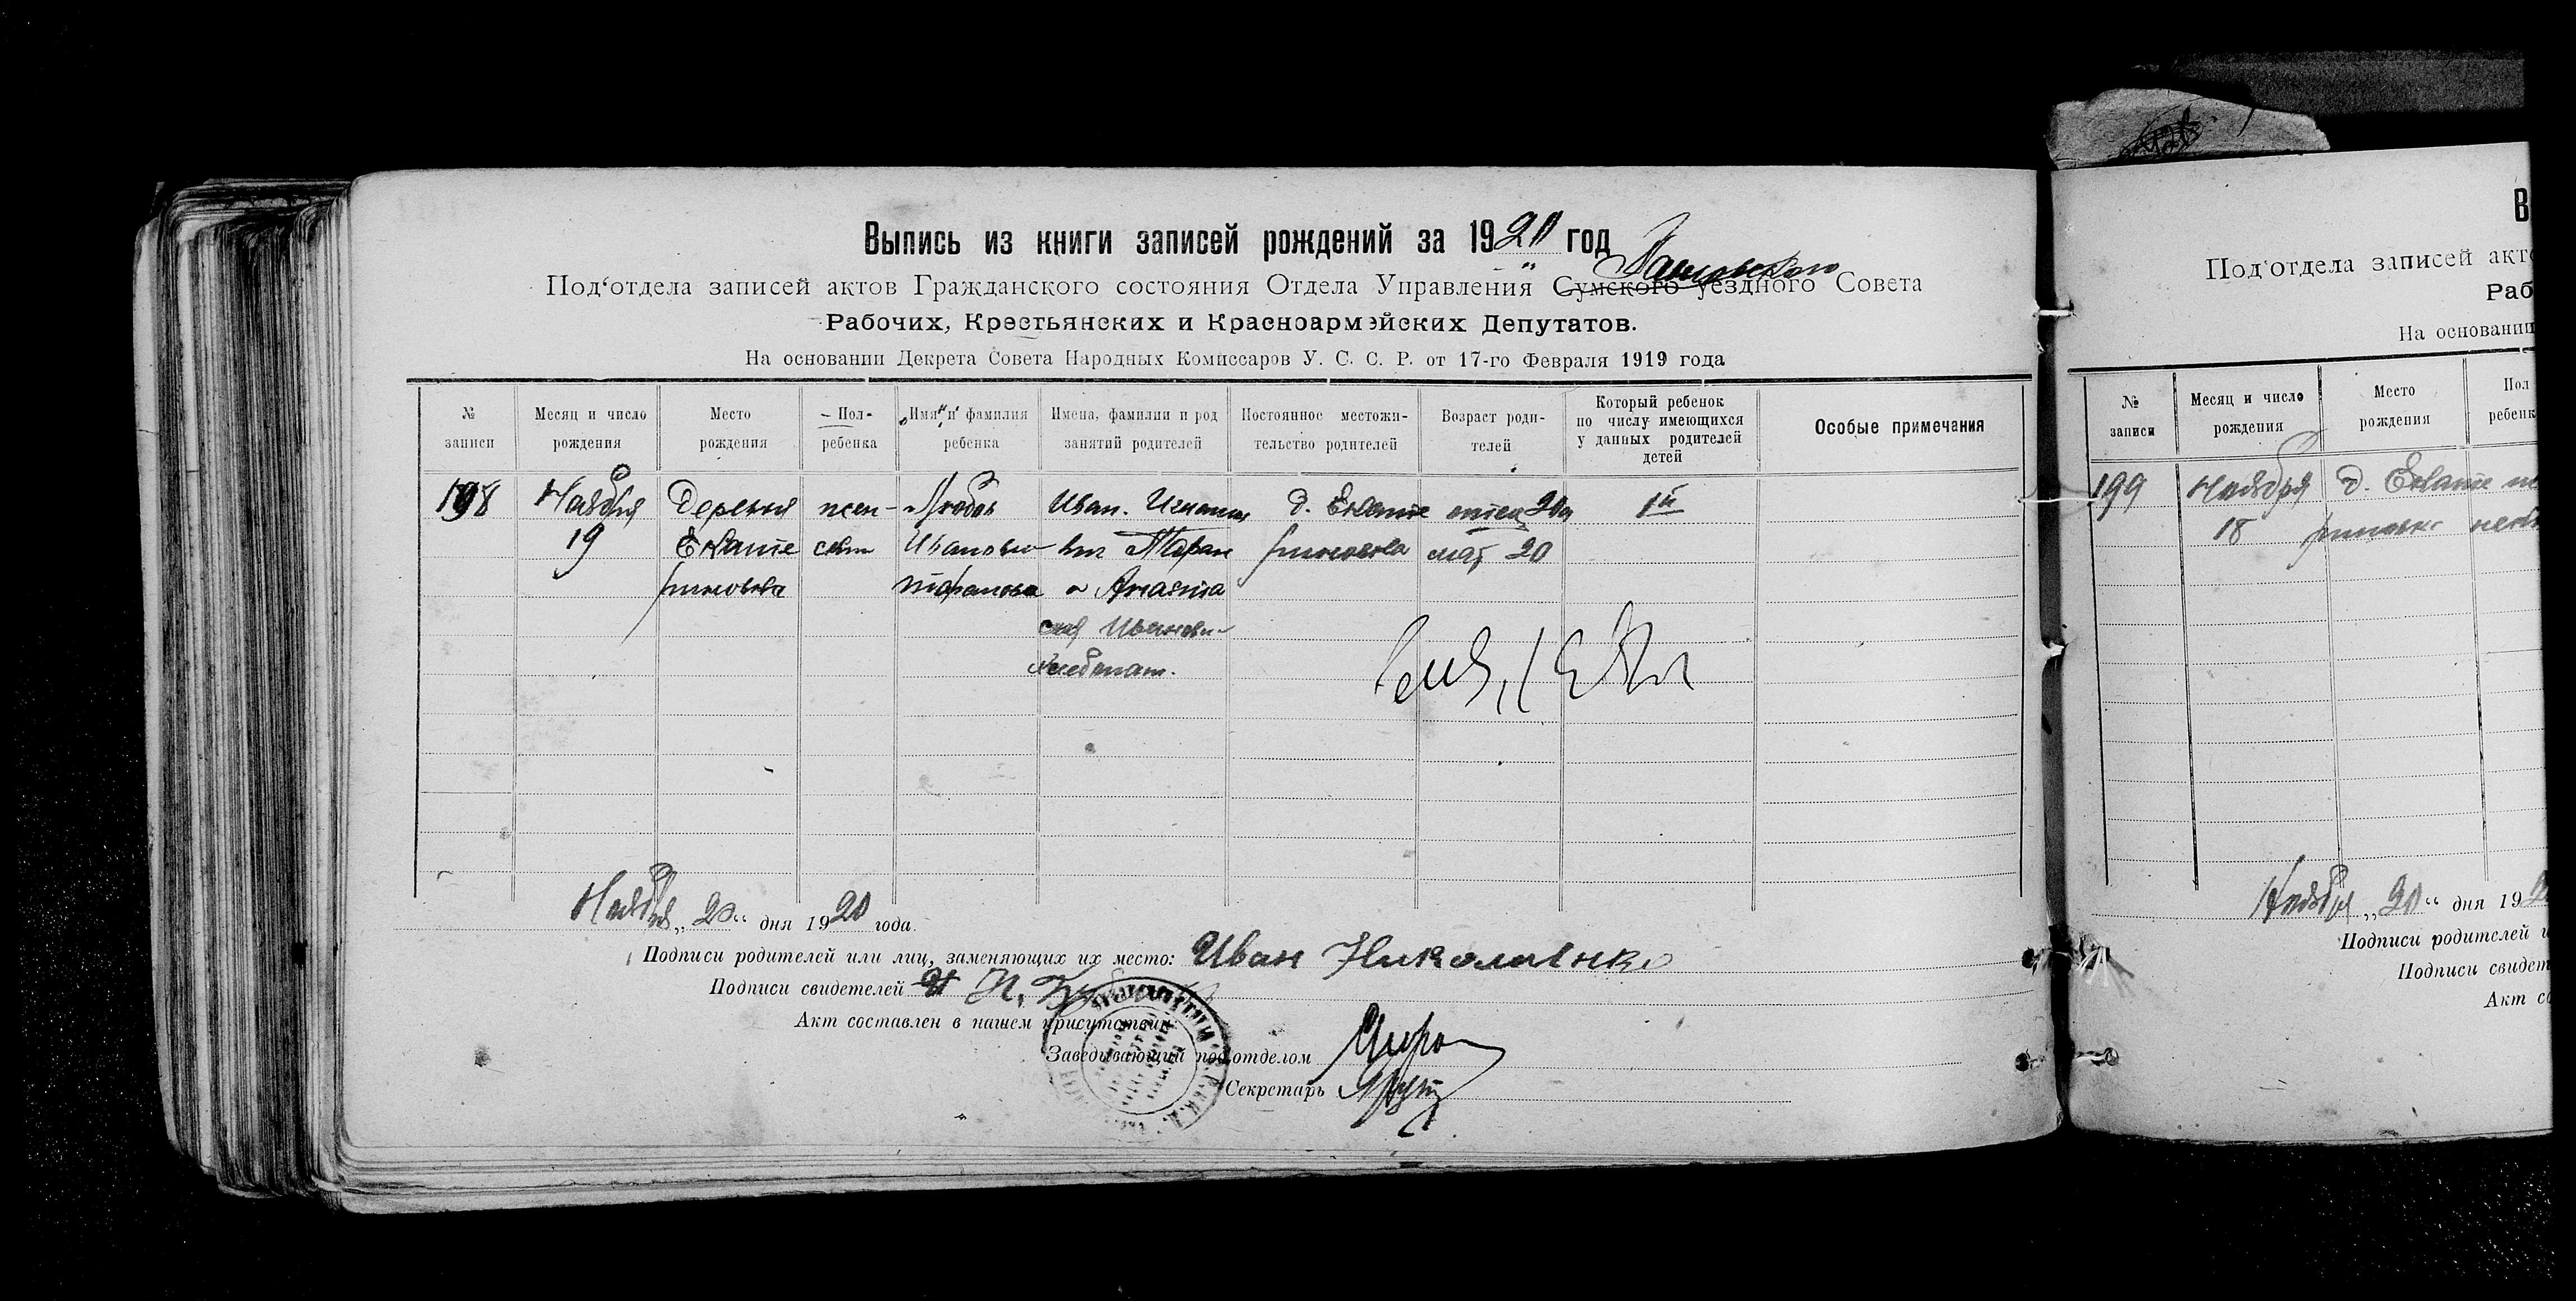 Выпись из книги записей рождений за 1920 год
Под'отдела записей актов Гражданского состояния Отдела Управления Сумского уездного Совета
Рабочих, Крестьянских и Красноармейских Депутатов.
На основании Декрета Совета Народных Комиссаров У. С. С. Р. от 17-го Февраля 1919 года
№ записи
Месяц и число рождения
Место рождения
Пол ребенка
Имя и фамилия ребенка
Имена, фамилии и род занятий родителей
Постоянное местожительство родителей
Возраст родителей
Который ребенок по числу имеющихся у данных родителей детей
Особые примечания
198
Ноября
19
Деревня
Екате
риновка
жен-
ски
Любов
Ивановна
Таранова
Иван. Игнатье
вич Таран
и Анаста
сия Иванов.
Хлебопаш.
д. Екате
риновка
отец 20
мат 20
1й
Ноября „20“ дня 1920 года.
Подписи родителей или лиц, заменяющих их место: Иван Николаенко
Подписи свидетелей
Акт составлен в нашем присутствии:
Заведывающий под'отделом
Секретарь
В
Под'отдела записей акт
Раб
На основании
№ записи
Месяц и число рождения
Место рождения
Пол
ребенк
199
Ноября
18
д. Екате
риновка
Ноября „20“ дня 192
Подписи родителей и
Подписи свидет
Акт со